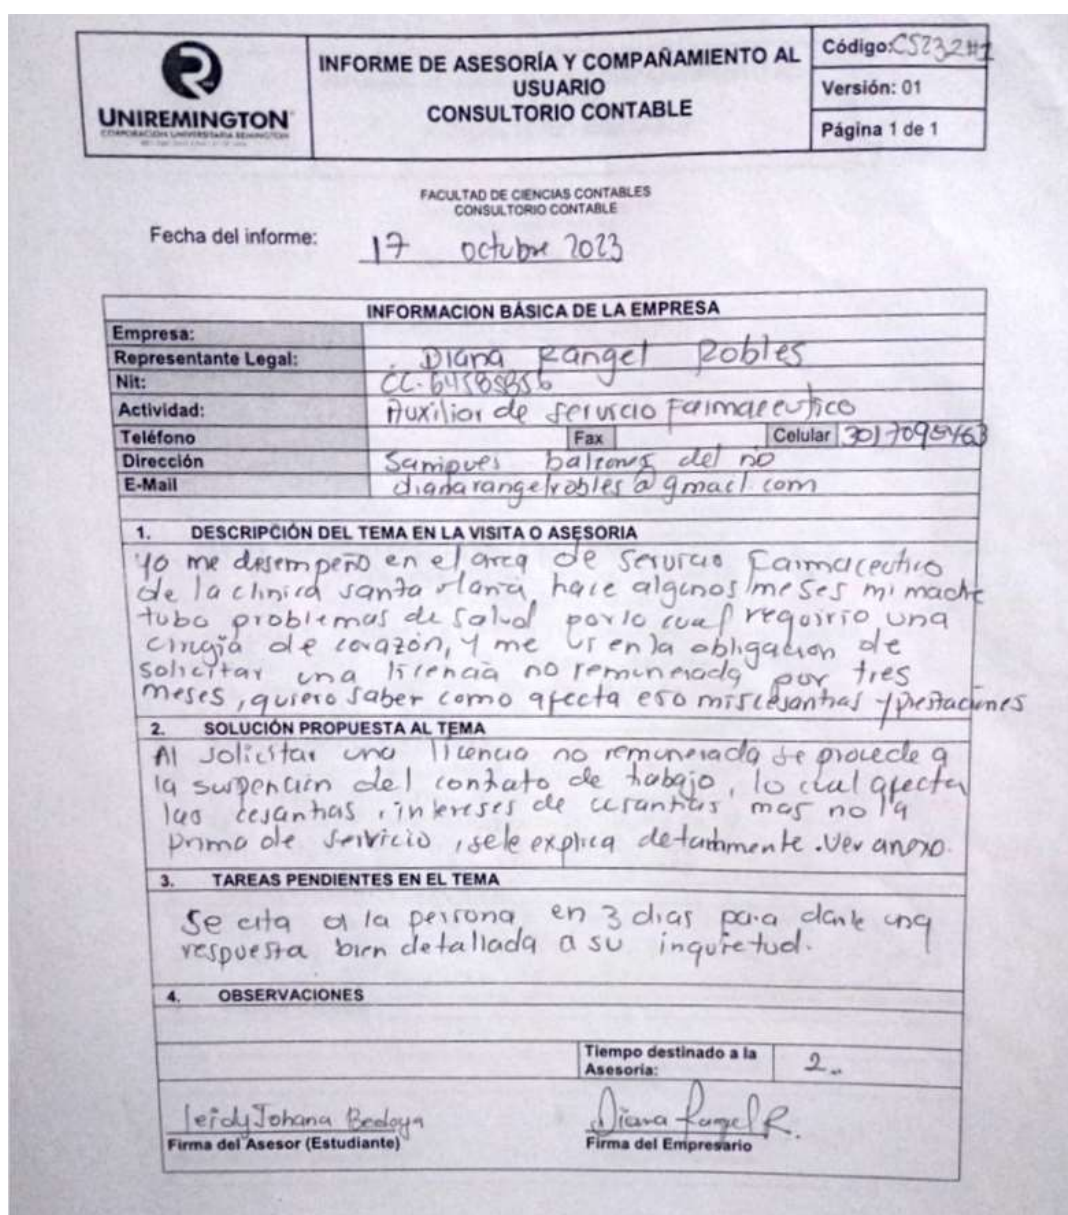 UNIREMINGTON
CORPORACIÓN UNIVERSITARIA REMINGTON
INFORME DE ASESORÍA Y COMPAÑAMIENTO AL
USUARIO
CONSULTORIO CONTABLE
Código: CS232#1
Versión: 01
Página 1 de 1
FACULTAD DE CIENCIAS CONTABLES
CONSULTORIO CONTABLE
Fecha del informe: 17 octubre 2023
INFORMACION BÁSICA DE LA EMPRESA
Empresa:
Representante Legal: Diana Rangel Robles
Nit: CC.
Actividad: Auxiliar de servicio Farmaceutico
Teléfono Fax Celular 3017095463
Dirección balcones del rio
E-Mail dianarangelrobles@gmail.com
1. DESCRIPCIÓN DEL TEMA EN LA VISITA O ASESORIA
Yo me desempeño en el area de servicio Farmaceutico
de la clinica santa Maria hace algunos meses mi madre
tubo problemas de salud por lo cual requirio una
cirugia de corazón, y me vi en la obligacion de
solicitar una licencia no remunerada por tres
meses, quiero saber como afecta eso mis cesantias y prestaciones
2. SOLUCIÓN PROPUESTA AL TEMA
Al solicitar una licencia no remunerada se procede a
la suspencion del contrato de trabajo, lo cual afecta
las cesantias, intereses de cesantias mas no la
prima de servicio, se le explica . Ver anexo.
3. TAREAS PENDIENTES EN EL TEMA
Se cita a la persona en 3 dias para darle una
respuesta bien detallada a su inquietud.
4. OBSERVACIONES
Tiempo destinado a la
Asesoria: 2
Leidy Johana Bedoya
Firma del Asesor (Estudiante)
Diana Rangel R.
Firma del Empresario